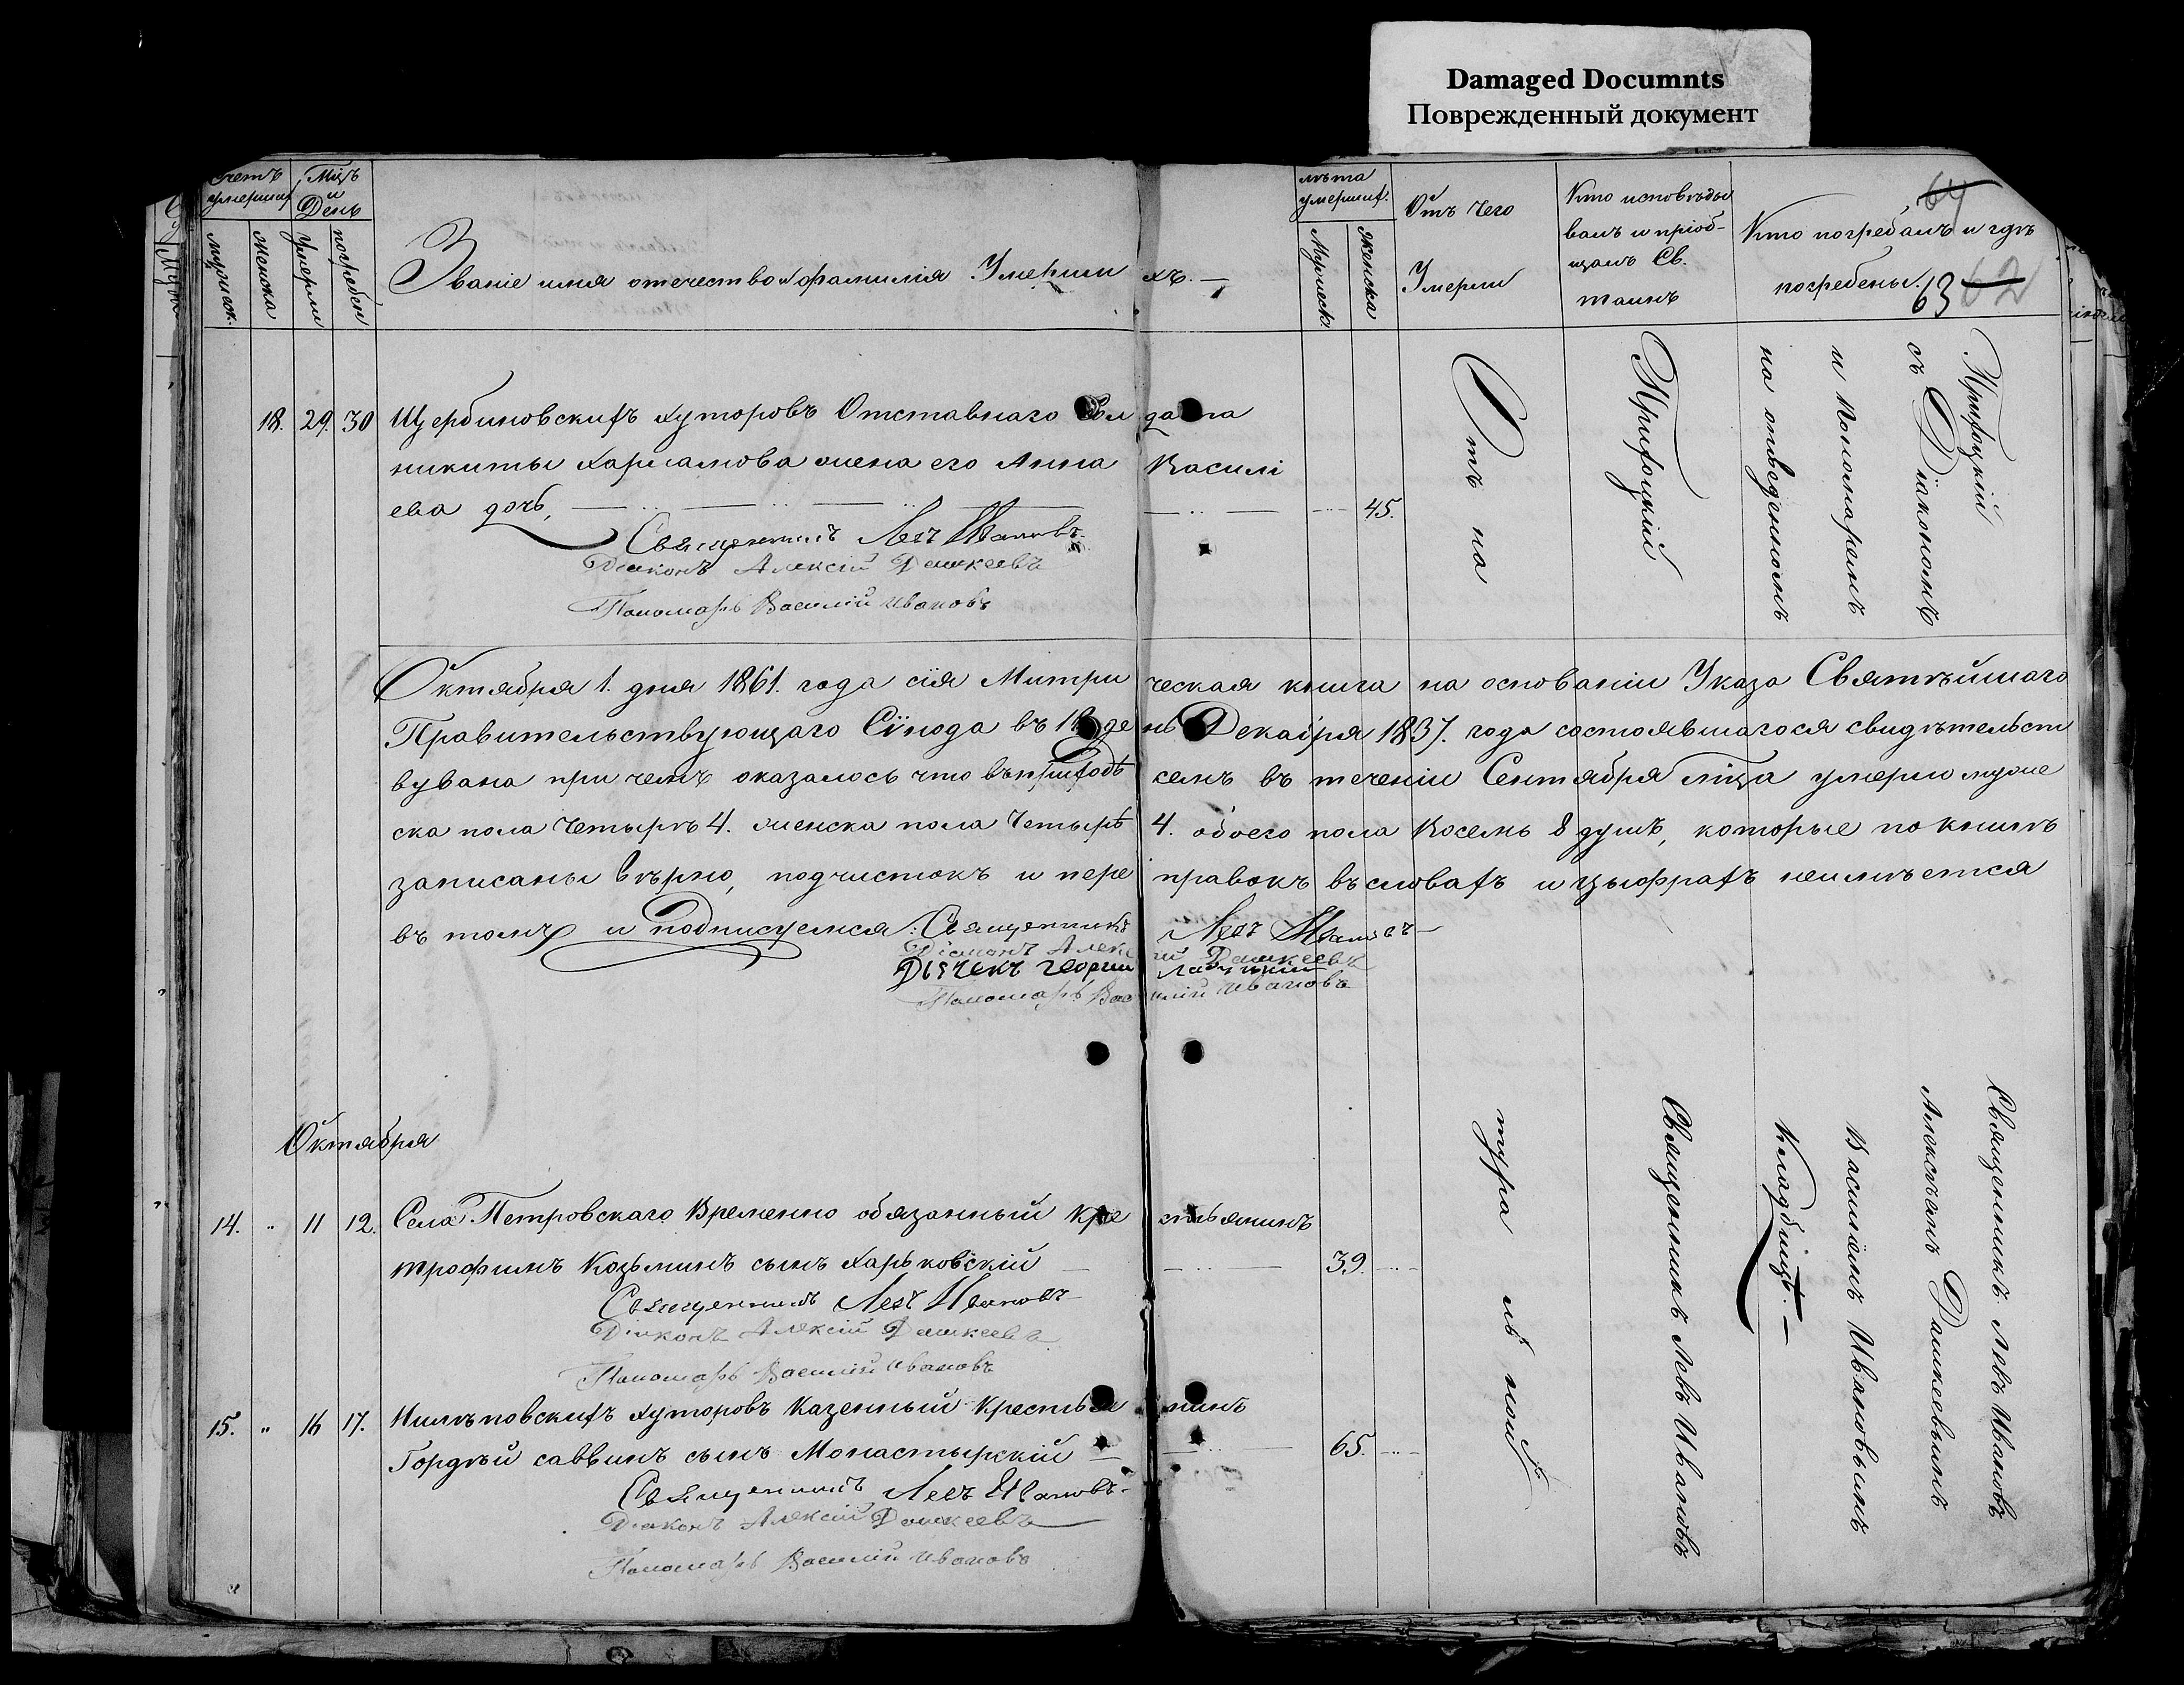 Damaged Documnts
Поврежденный документ
Счетъ умершихъ
Мцъ и День
мужеск.
женска
Умерли
погребен
Званіе имя отечество и фамилія Умерши хъ. —
лѣта умершихъ.
Мужеск.
женска
Отъ чего Умерли
Кто исповѣды
валъ и пріоб-
щалъ Св.
таинъ
Кто погребалъ и гдѣ
погребены.
64
63 62
18. 29. 30 Щербиновскихъ хуторовъ Отставного Сол дата
никиты Харламова жена его Анна Василі
ева дочь, 45.
Священникъ Левъ Ивановъ
Діаконъ Алексій Дашкеевъ
Пономарь Василій Ивановъ
Приходскій
Приходскій
съ Діакономъ
и Пономаремъ
на отведенномъ
Октября 1. дня 1861. года сія Митри ческая книга на основаніи Указа Святѣйшаго
Правительствующаго Сѵнода въ де нь Декабря 1837. года состоявшагося свидѣтельст
вувана при чемъ оказалось что въ приходѣ семъ въ теченіи Сентября мца умерло муже
ска пола Четырѣ 4. женска пола Четырѣ 4. обоего пола Восемь 8 душъ, которые по книгѣ
записаны вѣрно, подчистокъ и пере правокъ въ словахъ и цыфрахъ неимѣется
въ томъ и подписуемся: Священникъ Левъ Ивановъ
Діаконъ Алексій Дашкеевъ
Діячекъ Георгій
Пономарь Василій Ивановъ
Октября
14. " 11 12. Села Петровскаго Временно обязанный Кре стьянинъ
трофимъ Козьминъ сынъ Харьковскій 39.
Священникъ Левъ Ивановъ
Діаконъ Алексій Дашкеевъ
Пономарь Василій Ивановъ
15. " 16 17. хуторовъ Казенный Крестья нинъ
Гордѣй саввинъ сынъ Монастырскій — 65.
Священникъ Левъ Ивановъ
Діаконъ Алексій Дашкеевъ
Пономарь Василій Ивановъ
Священникъ Левъ Ивановъ
Священникъ Левъ Ивановъ
Алексѣемъ Дашкеевымъ
Василіемъ Ивановымъ
Кладбищѣ. —